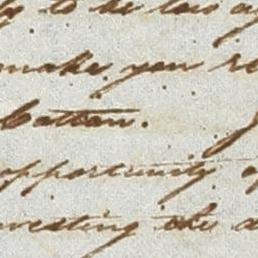 to be
make you re
Cotton.
opportunity of
investing the